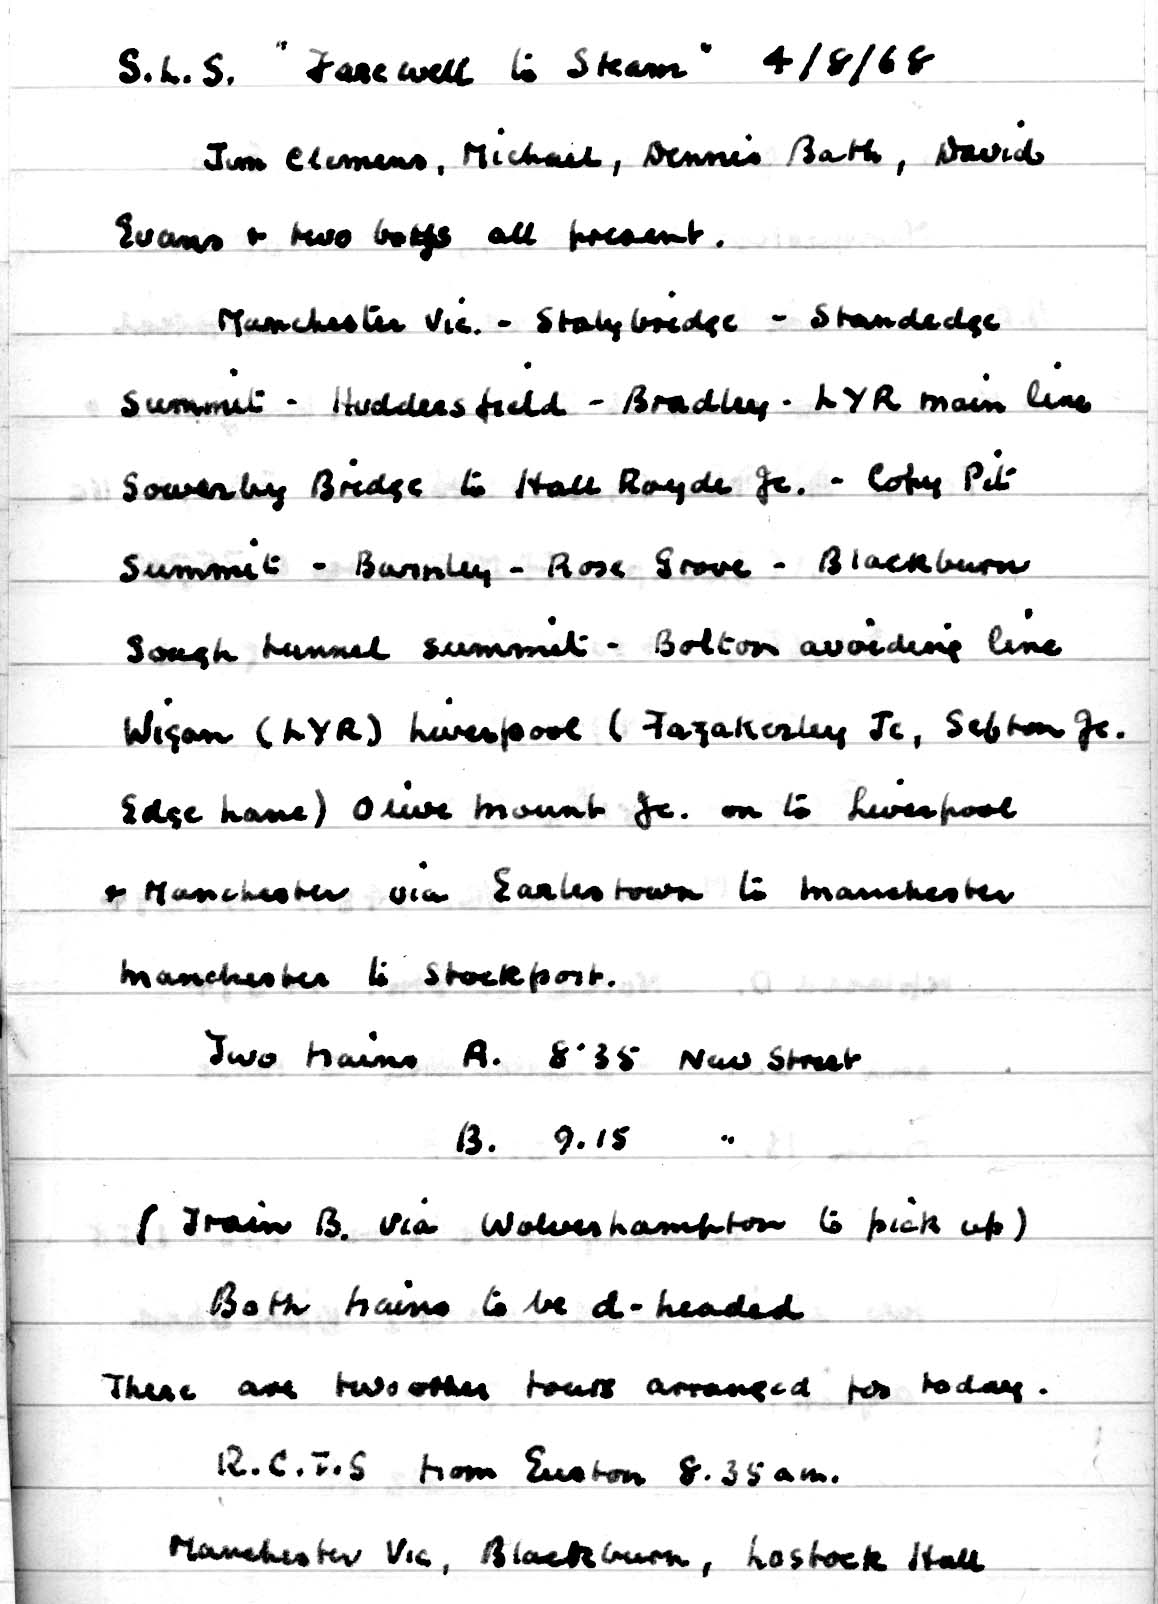 S.L.S. "Farewell to Steam" 4/8/68
Jim Clemens, Michael, Dennis Bath, David
Evans & two boys all present.
Manchester Vic. - Stalybridge - Standedge
Summit - Huddersfield - Bradley - LYR main line
Sowerby Bridge to Hall Royde Jc. - Copy Pit
Summit - Burnley - Rose Grove - Blackburn
Sough tunnel summit - Bolton avoiding line
Wigan (LYR) Liverpool ( Fazakerley Jc, Sefton Jc.
Edge Lane) Olive Mount Jc. on to Liverpool
& Manchester via Earlestown to Manchester
Manchester to Stockport.
Two trains A. 8.35 New Street
B. 9.15 "
( Train B. via Wolverhampton to pick up)
Both trains to be d-headed
There are two other tours arranged for today.
R.C.T.S from Euston 8.35 am.
Manchester Vic, Blackburn, Lostock Hall